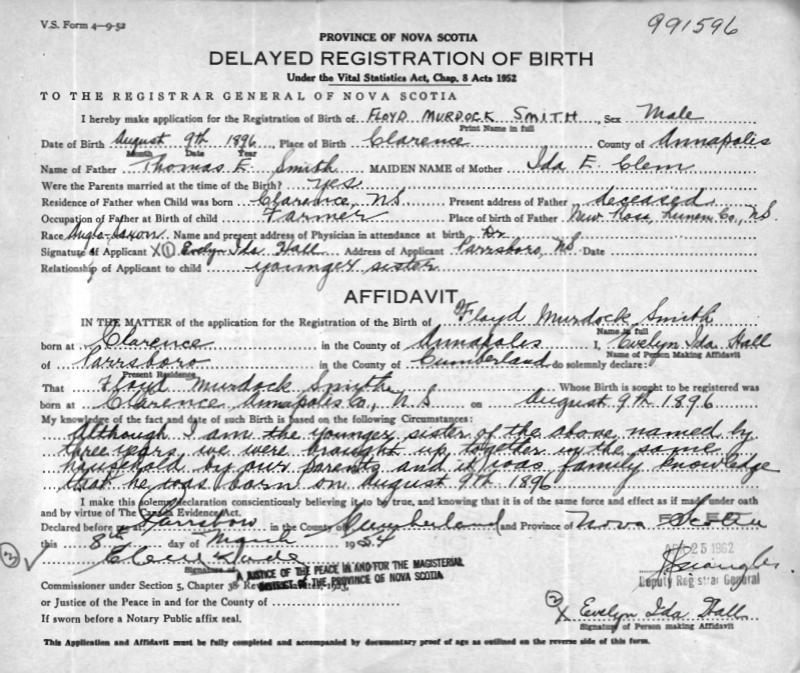 V.S. Form 4—9-52
991596
PROVINCE OF NOVA SCOTIA
DELAYED REGISTRATION OF BIRTH
Under the Vital Statistics Act, Chap. 8 Acts 1952
TO THE REGISTRAR GENERAL OF NOVA SCOTIA
I hereby make application for the Registration of Birth of FLOYD MURDOCK SMITH, Sex Male
Print Name in full
Date of Birth August 9th 1896, Place of Birth Clarence County of Annapolis
Month Date Year
Name of Father Thomas E. Smith MAIDEN NAME of Mother Ida E. Clem
Were the Parents married at the time of the Birth? Yes
Residence of Father when Child was born Clarence, NS Present address of Father deceased
Occupation of Father at Birth of child Farmer Place of birth of Father New Ross, Lunen. Co., N.S.
Race Anglo-Saxon. Name and present address of Physician in attendance at birth Dr
Signature of Applicant X① Evelyn Ida Hall Address of Applicant Parrsboro, NS Date
Relationship of Applicant to child younger sister
AFFIDAVIT
IN THE MATTER of the application for the Registration of the Birth of Floyd Murdock Smith
Name in full
born at Clarence in the County of Annapolis I, Evelyn Ida Hall
Name of Person Making Affidavit
of Parrsboro in the County of Cumberland do solemnly declare:
Present Residence
That Floyd Murdock Smith Whose Birth is sought to be registered was
born at Clarence Annapolis Co., N.S on August 9th 1896
My knowledge of the fact and date of such Birth is based on the following Circumstances:
Although I am the younger sister of the above named by
three years, we were brought up together in the same
household by our parents and it was family knowledge
that he was born on August 9th 1896
I make this solemn declaration conscientiously believing it to be true, and knowing that it is of the same force and effect as if made under oath
and by virtue of The Canada Evidence Act.
Declared before me at Parrsboro in the County of Cumberland and Province of Nova Scotia
this 8th day of March 1954
25 1962
② ✓
Signature of
A JUSTICE OF THE PEACE IN AND FOR THE MAGISTERIAL
DISTRICT OF THE PROVINCE OF NOVA SCOTIA
Deputy Registrar General
Commissioner under Section 5, Chapter 38 Revised
or Justice of the Peace in and for the County of
② X Evelyn Ida Hall
If sworn before a Notary Public affix seal.
Signature of Person making Affidavit
This Application and Affidavit must be fully completed and accompanied by documentary proof of age as outlined on the reverse side of this form.